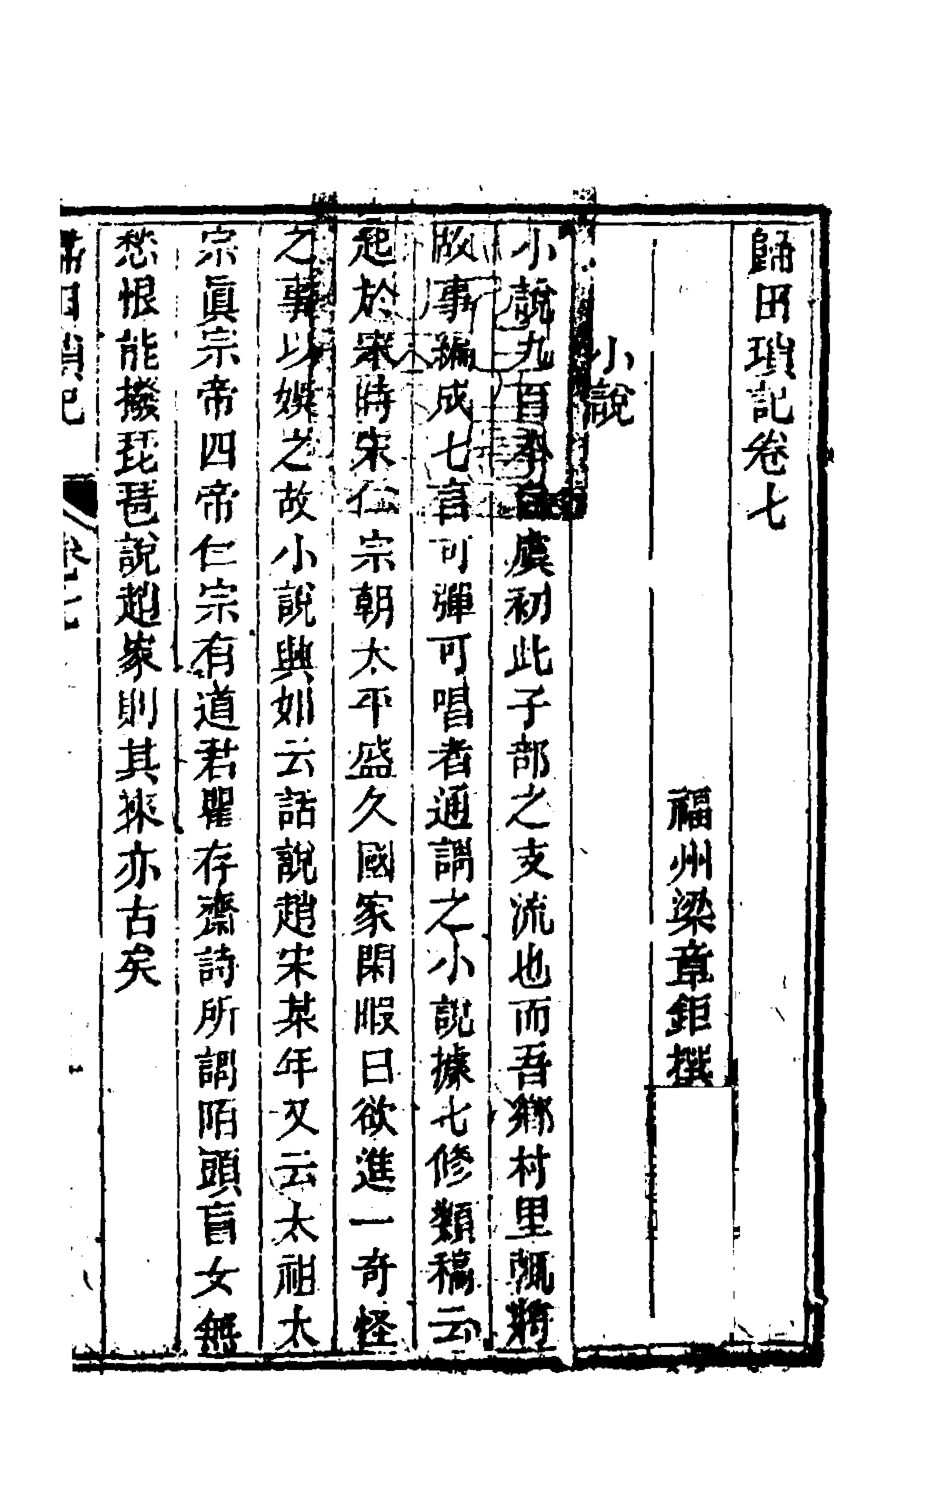 歸田瑣記卷七
福州梁章鉅撰
小說
小說九百本自虞初此子部之支流也而吾鄉村里輒將
故事編成七言可彈可唱者通謂之小說據七修類稿云
起於宋時宋仁宗朝太平盛久國家閑暇日欲進一奇怪
之事以娛之故小說興如云話說趙宋某年又云太祖太
宗眞宗帝四帝仁宗有道君瞿存齋詩所謂陌頭盲女無
愁恨能撥琵琶說趙家則其來亦古矣
歸田瑣記
卷七